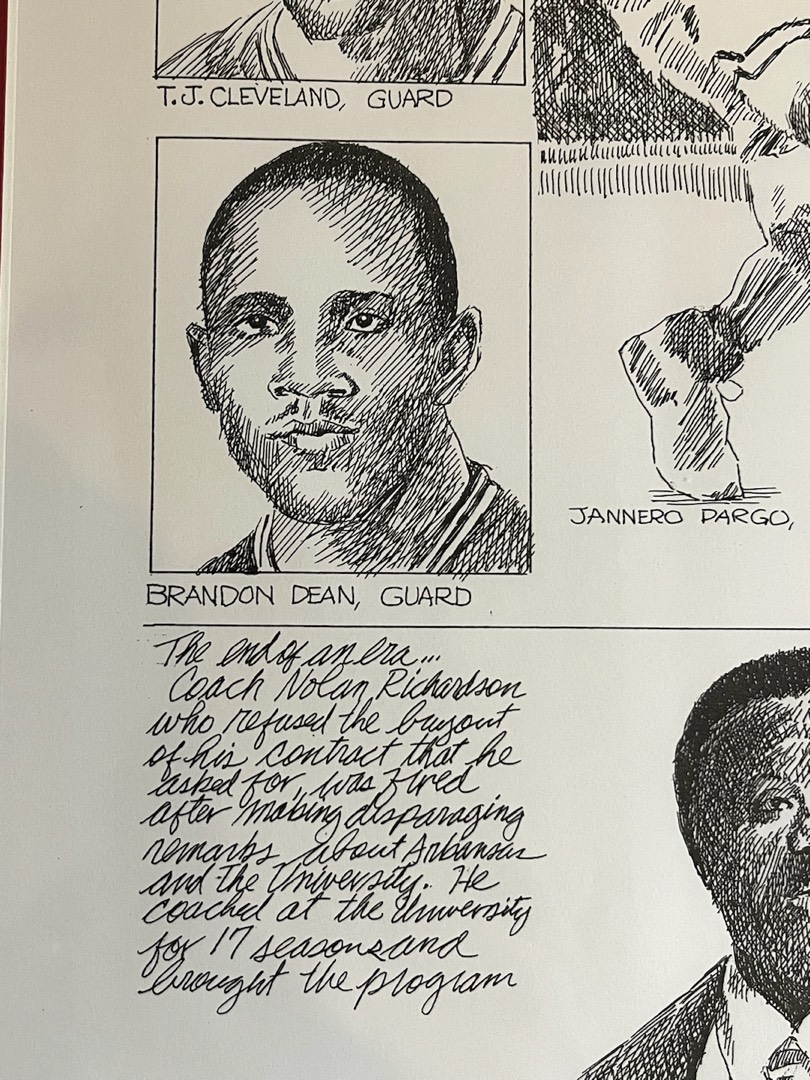 T.J. CLEVELAND, GUARD
BRANDON DEAN, GUARD
JANNERO PARGO,
The end of an era...
Coach Nolan Richardson
who refused the buyout
of his contract that he
asked for, was fired
after making disparaging
remarks about Arkansas
and the University. He
coached at the University
for 17 seasons and
brought the program